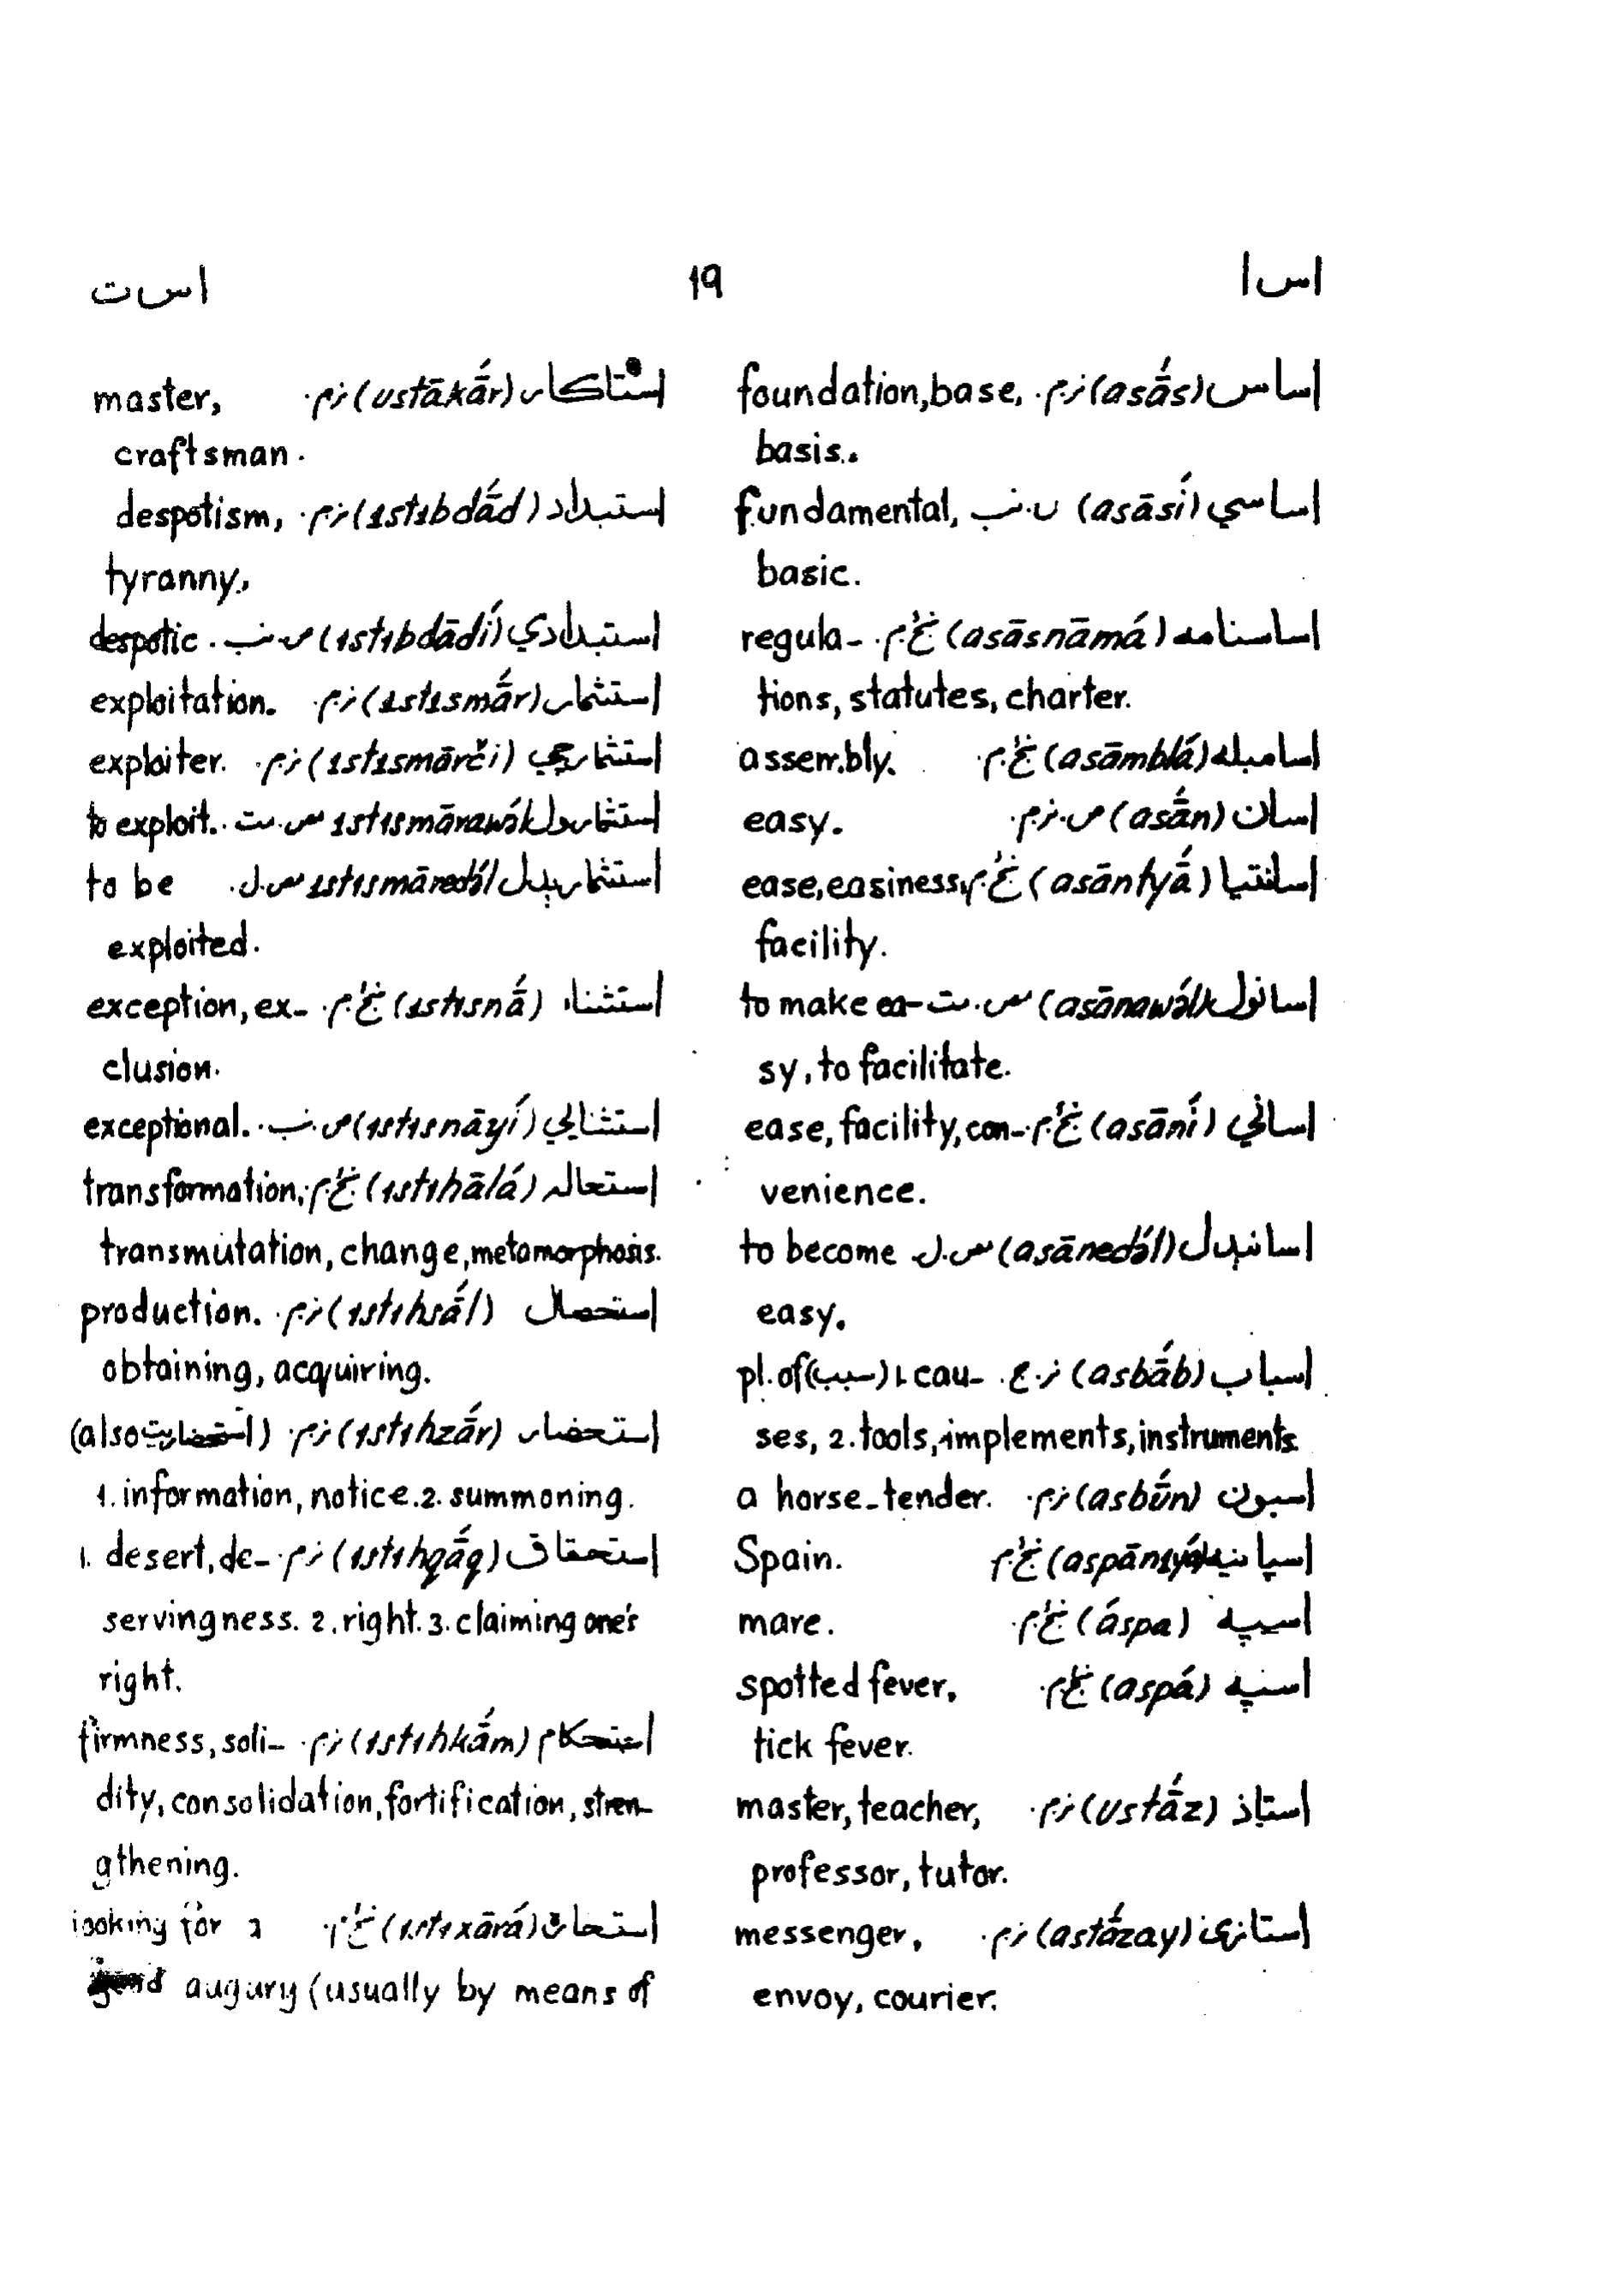 اس‌ا 19 اس‌ت
اساس (asā́s) نر.م. foundation, base,
basis.
اساسي (asāsí) ص.نب. fundamental,
basic.
اساسنامه (asāsnāmá) ښځ.م. regula-
tions, statutes, charter.
اسامبله (asāmblá) ښځ.م assembly.
اسان (asā́n) ص.نر.م. easy.
اسانتيا (asāntyā́) ښځ.م. ease, easiness,
facility.
اسانول (asānawə́l) مص.مت. to make ea-
sy, to facilitate.
اساني (asāní) ښځ.م. ease, facility, con-
venience.
اسانېدل (asānedə́l) مص.ل. to become
easy.
اسباب (asbā́b) نر.ج. pl. of (سبب) 1. cau-
ses, 2. tools, implements, instruments.
اسبون (asbū́n) نر.م. a horse-tender.
اسپانيه (aspānɪyá) ښځ.م Spain.
اسپه (áspa) ښځ.م. mare.
اسپه (aspá) ښځ.م. spotted fever,
tick fever.
استاذ (ustā́z) نر.م. master, teacher,
professor, tutor.
استازی (astā́zay) نر.م. messenger,
envoy, courier.
استاكار (ustākā́r) نر.م. master,
craftsman.
استبداد (ɪstɪbdā́d) نر.م. despotism,
tyranny.
استبدادي (ɪstɪbdādí) ص.نب. despotic.
استثمار (ɪstɪsmā́r) نر.م. exploitation.
استثمارچي (ɪstɪsmārčí) نر.م. exploiter.
استثمارول ɪstɪsmārawə́l مص.مت. to exploit.
استثمارېدل ɪstɪsmāredə́l مص.ل. to be
exploited.
استثناء (ɪstɪsnā́) ښځ.م. exception, ex-
clusion.
استثنايي (ɪstɪsnāyí) ص.نب. exceptional.
استحاله (ɪstɪhālá) ښځ.م. transformation,
transmutation, change, metamorphosis.
استحصال (ɪstɪhsā́l) نر.م. production.
obtaining, acquiring.
استحضار (ɪstɪhzā́r) نر.م. (also استحضاريت)
1. information, notice. 2. summoning.
استحقاق (ɪstɪhqā́q) نر.م. 1. desert, de-
servingness. 2. right. 3. claiming one's
right.
استحكام (ɪstɪhkā́m) نر.م. firmness, soli-
dity, consolidation, fortification, stren-
gthening.
(ɪstɪxārá) ښځ.م. looking for a
augury (usually by means of